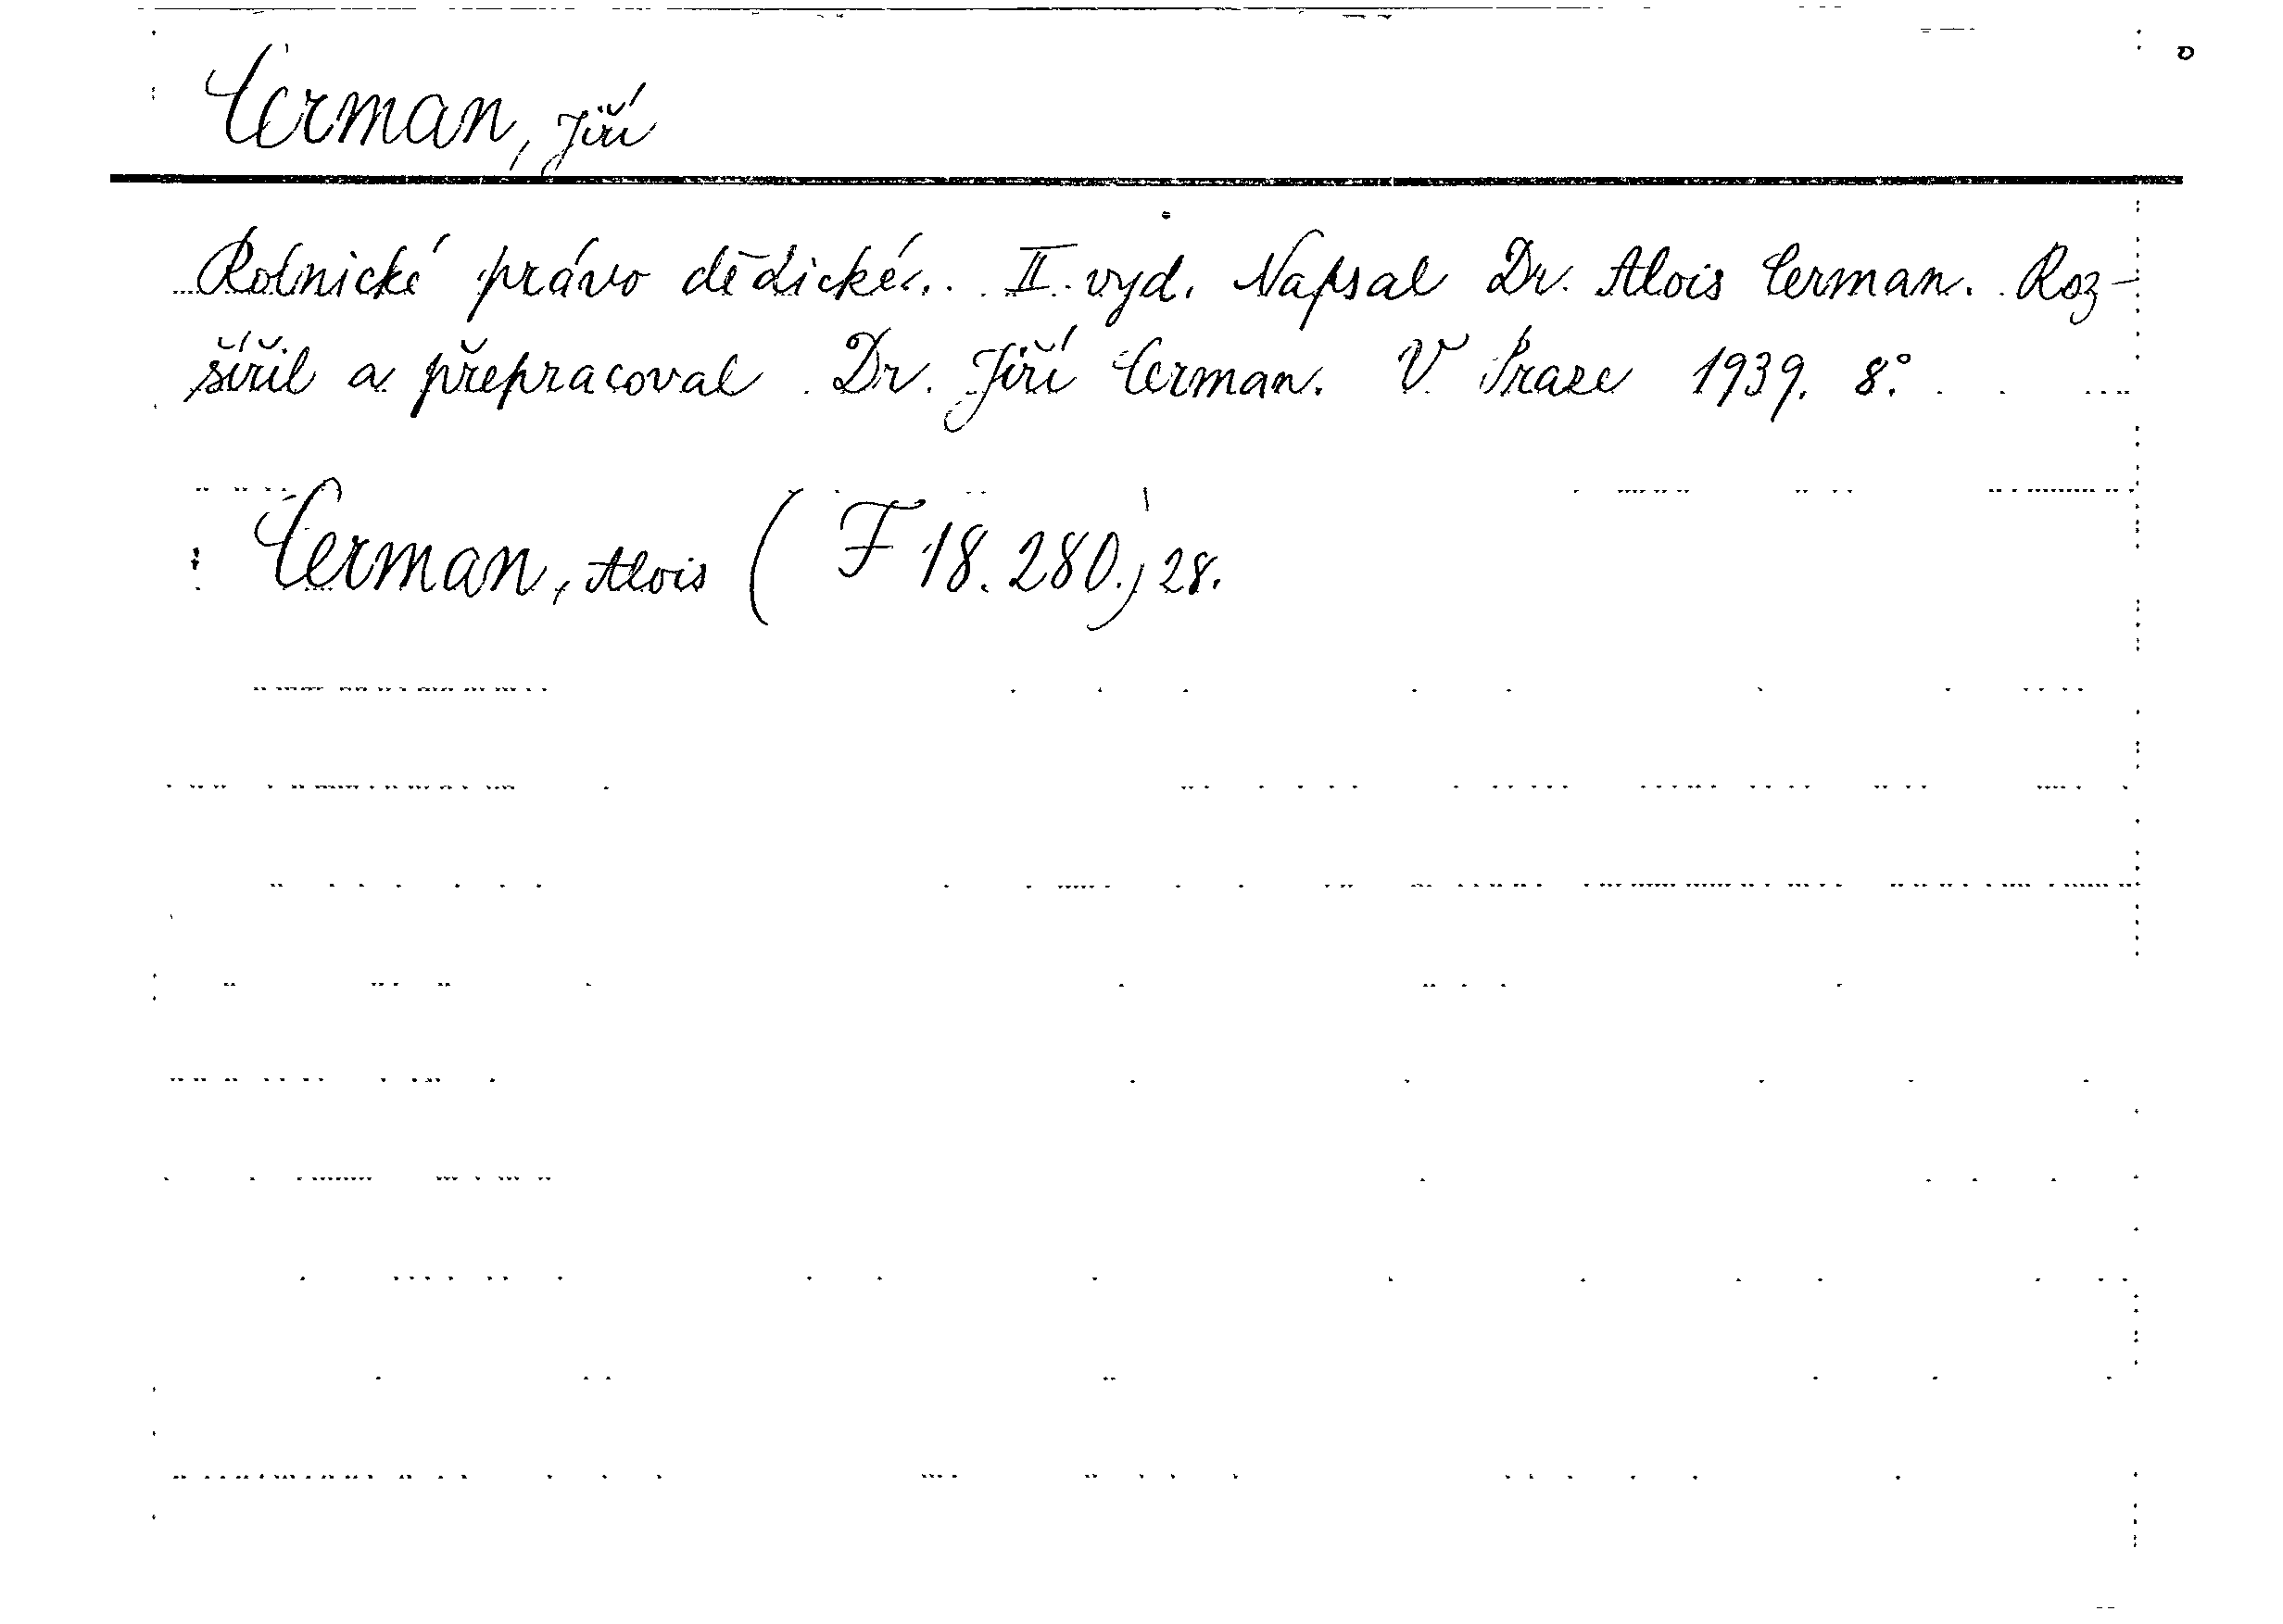 Cerman, Jiří
Rolnické právo dědické... II. vyd. Napsal Dr. Alois Cerman. Roz-
šířil a přepracoval Dr. Jiří Cerman. V Praze 1939. 8°.
: Cerman, Alois ( F 18.280.) 28.